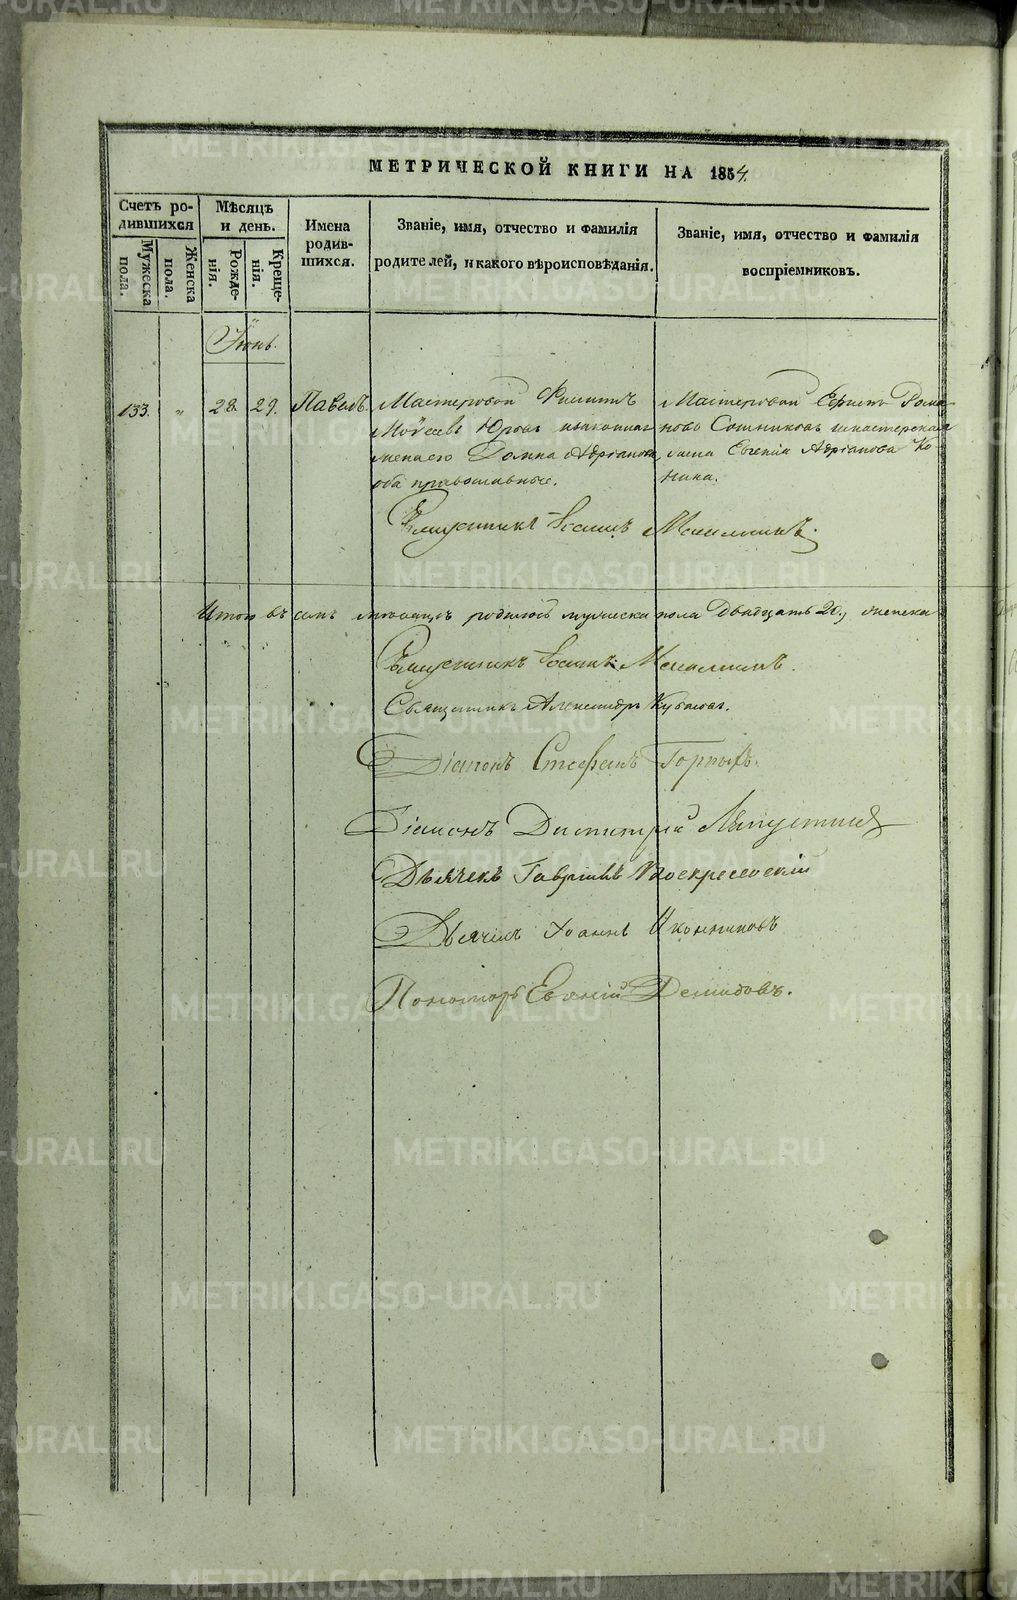 МЕТРИЧЕСКОЙ КНИГИ НА 1854.
Счетъ ро-
дившихся
Мужеска
пола.
Женска
пола.
Мѣсяцъ
и день.
Рожде-
нія.
Креще-
нія.
Имена
родив-
шихся.
Званіе, имя, отчество и фамилія
родителей, и какого вѣроисповѣданія.
Званіе, имя, отчество и фамилія
воспріемниковъ.
Іюнь.
133. „ 28. 29. Павелъ.
Мастеровой Филиппъ
Моѵсеевъ Юровъ и законная
жена его Домна Адріанова
оба православные.
Мастеровой Рома-
новъ Сотниковъ и мастерская
жена Евгенія Адріанова Ко-
Священникъ Іоаннъ
Итого въ семъ мѣсяцѣ родилось мужеска пола двадцать 20, женска
Священникъ Іоаннъ
Священникъ Александръ
Діаконъ Стефанъ Горныхъ.
Діаконъ Димитрій Ляпустинъ
Дьячекъ Гавріилъ Воскресенскій
Дьячекъ Іоаннъ Иконниковъ
Пономарь Демидовъ.
METRIKI.GASO-URAL.RU